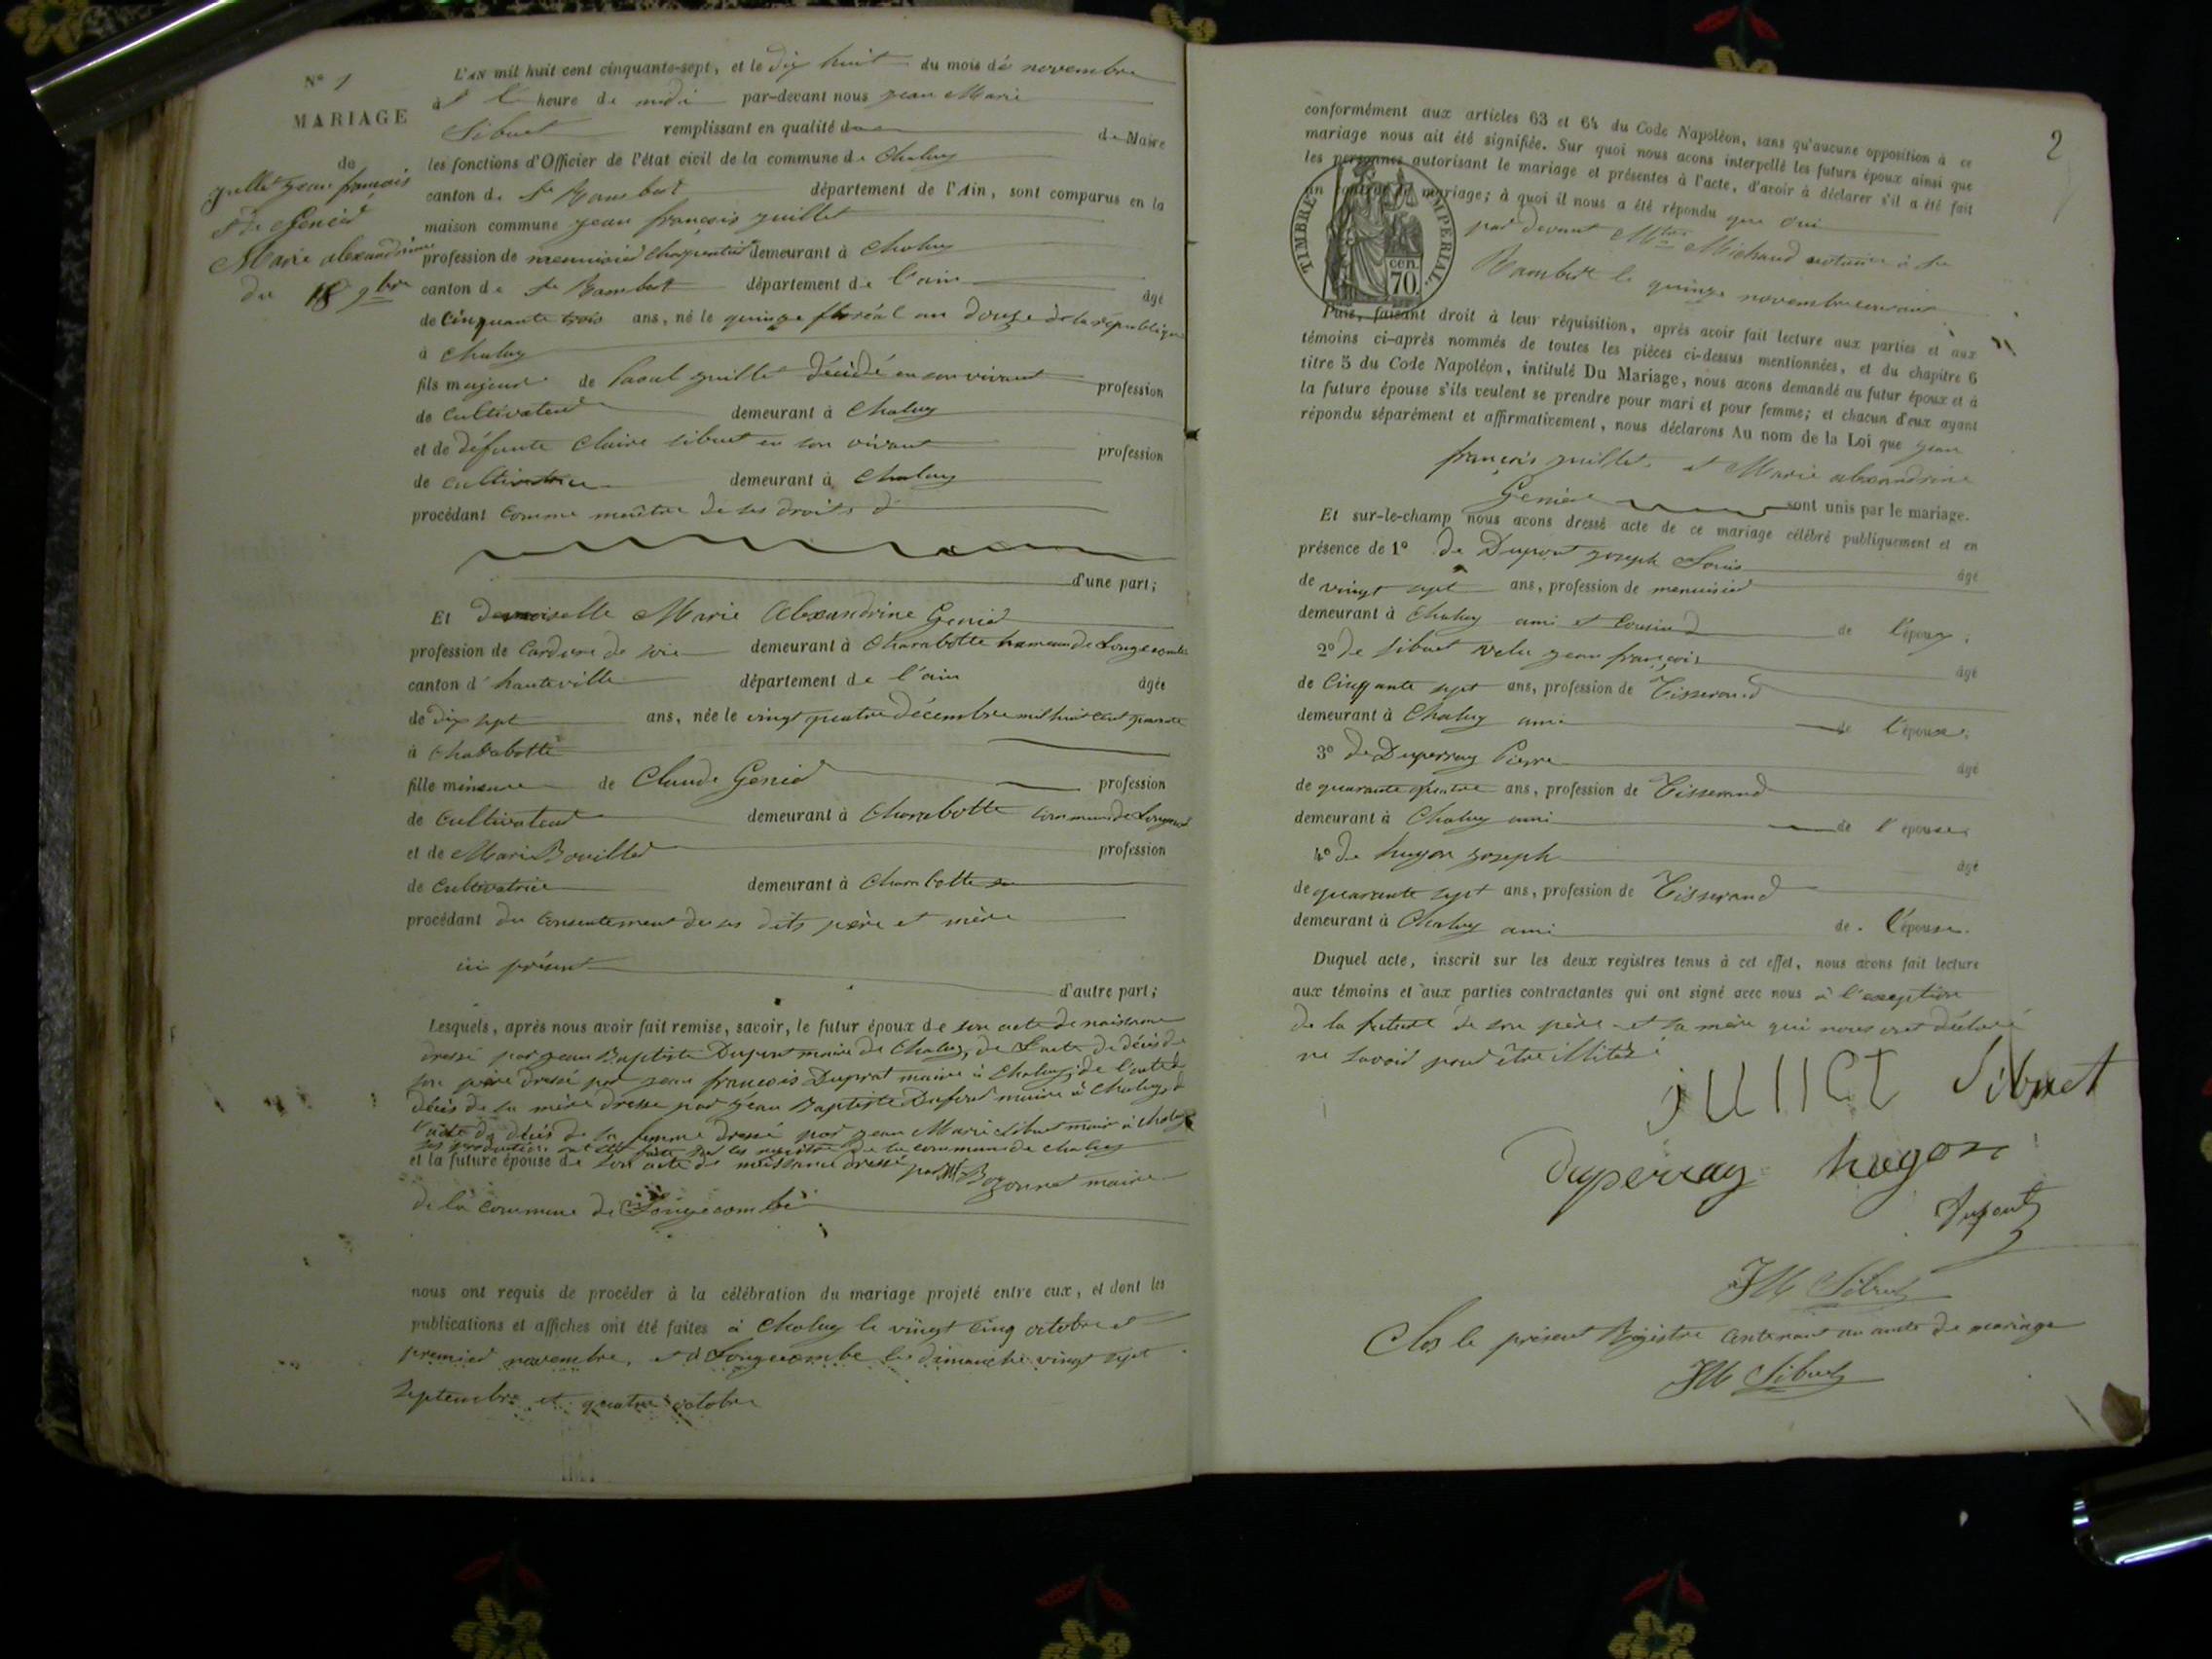 N° 1
MARIAGE
de
juillet jean françois
et de Genier
Marie alexandrine
du 18 9bre
L'AN mil huit cent cinquante-sept, et le dix huit du mois de novembre
à l'heure de midi par-devant nous jean Marie
Sibuet remplissant en qualité de Maire
les fonctions d'Officier de l'état civil de la commune de Chaley
canton de St Rambert département de l'Ain, sont comparus en la
maison commune jean françois juillet
profession de menuisier charpentier demeurant à Chaley
canton de St Rambert département de l'ain âgé
de Cinquante trois ans, né le quinze floréal an douze de la république
à Chaley
fils majeur de juillet décédé en son vivant profession
de Cultivateur demeurant à Chaley
et de défunte Claire sibuet en son vivant profession
de cultivatrice demeurant à Chaley
procédant comme maître de ses droits
d'une part;
Et demoiselle Marie Alexandrine Genier
profession de Cardeuse de soie demeurant à Charabotte hameau de Longecombe
canton d'hauteville département de l'ain âgée
de dix sept ans, née le vingt quatre décembre mil huit cent quarante
à Charabotte
fille mineure de Claude Genier profession
de Cultivateur demeurant à Charabotte commune de Longecombe
et de Marie Bouillet profession
de Cultivatrice demeurant à Charabotte
procédant du consentement de ses dits père et mère
ici présent
d'autre part;
Lesquels, après nous avoir fait remise, savoir, le futur époux de son acte de naissance
dressé par jean Baptiste Dupont maire de Chaley, de l'acte de décès de
son père dressé par jean françois maire à Chaley, de l'acte de
décès de sa mère dressé par jean Baptiste maire à Chaley, et
l'acte de décès de sa femme dressé par jean Marie Sibuet maire à Chaley
sur les registres de la commune de Chaley
et la future épouse de son acte de naissance dressé par maire
de la commune de Longecombe
nous ont requis de procéder à la célébration du mariage projeté entre eux, et dont les
publications et affiches ont été faites à Chaley le vingt cinq octobre et
premier novembre, et à Longecombe les dimanche vingt sept
septembre et quatre octobre
2
conformément aux articles 63 et 64 du Code Napoléon, sans qu'aucune opposition à ce
mariage nous ait été signifiée. Sur quoi nous avons interpellé les futurs époux ainsi que
les personnes autorisant le mariage et présentes à l'acte, d'avoir à déclarer s'il a été fait
un contrat de mariage; à quoi il nous a été répondu que oui
par devant Michaud notaire à St
Rambert le quinze novembre courant
TIMBRE IMPERIAL.
cen.
70.
Puis, faisant droit à leur réquisition, après avoir fait lecture aux parties et aux
témoins ci-après nommés de toutes les pièces ci-dessus mentionnées, et du chapitre 6
titre 5 du Code Napoléon, intitulé Du Mariage, nous avons demandé au futur époux et à
la future épouse s'ils veulent se prendre pour mari et pour femme; et chacun d'eux ayant
répondu séparément et affirmativement, nous déclarons Au nom de la Loi que jean
françois juillet et Marie alexandrine
Genier sont unis par le mariage.
Et sur-le-champ nous avons dressé acte de ce mariage célébré publiquement et en
présence de 1° de Dupont joseph Louis âgé
de vingt sept ans, profession de menuisier
demeurant à Chaley ami et cousin de l'époux;
2° de sibuet jean françois âgé
de Cinquante sept ans, profession de Tisserand
demeurant à Chaley ami de l'époux;
3° de Duperray Pierre âgé
de quarante quatre ans, profession de Tisserand
demeurant à Chaley ami de l'épouse
4° de hugon joseph âgé
de quarante sept ans, profession de Tisserand
demeurant à Chaley ami de l'épouse.
Duquel acte, inscrit sur les deux registres tenus à cet effet, nous avons fait lecture
aux témoins et aux parties contractantes qui ont signé avec nous à l'exeption
de la future de son père et sa mère qui nous ont déclaré
ne savoir pour être illitéré
juillet Sibuet
Duperray hugon
Dupont
JM Sibuet
Clos le présent Régistre contenant un acte de mariage
JM Sibuet